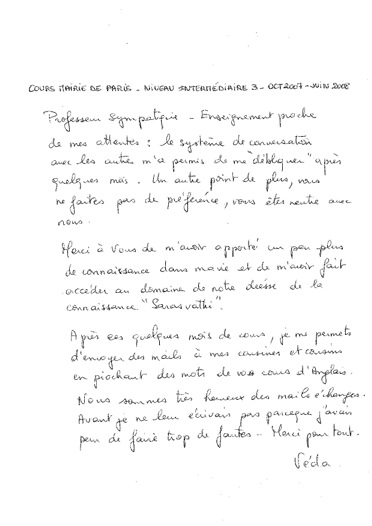 COURS MAIRIE DE PARIS - NIVEAU INTERMÉDIAIRE 3 - OCT 2007 - JUIN 2008
Professeur Sympatique - Enseignement proche
de mes attentes : le système de conversation
avec les autres m'a permis de me "débloquer" après
quelques mois. Un autre point de plus, vous
ne faites pas de préférence, vous êtes neutre avec
nous.
Merci à Vous de m'avoir apporté un peu plus
de connaissance dans ma vie et de m'avoir fait
accéder au domaine de notre déesse de la
connaissance "Sarasvathi".
Après ces quelques mois de cours, je me permets
d'envoyer des mails à mes cousines et cousins
en piochant des mots de vos cours d'Anglais.
Nous sommes très heureux des mails échangés.
Avant je ne leur écrivais pas parceque j'avais
peur de faire trop de fautes.. Merci pour tout.
Véda